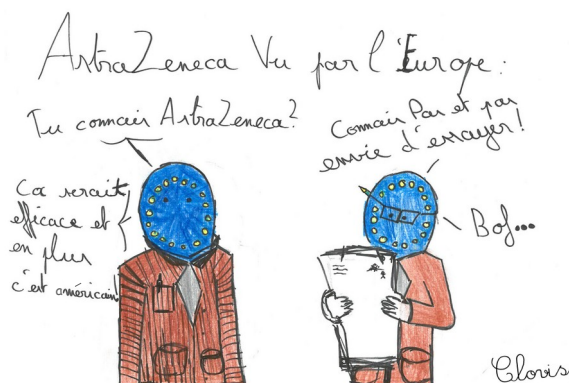 AstraZeneca Vu par l'Europe :
Tu connais AstraZeneca?
Ca serait
efficace et
en plus
c'est américain!
Connais Pas et pas
envie d'essayer!
Bof...
Clovis